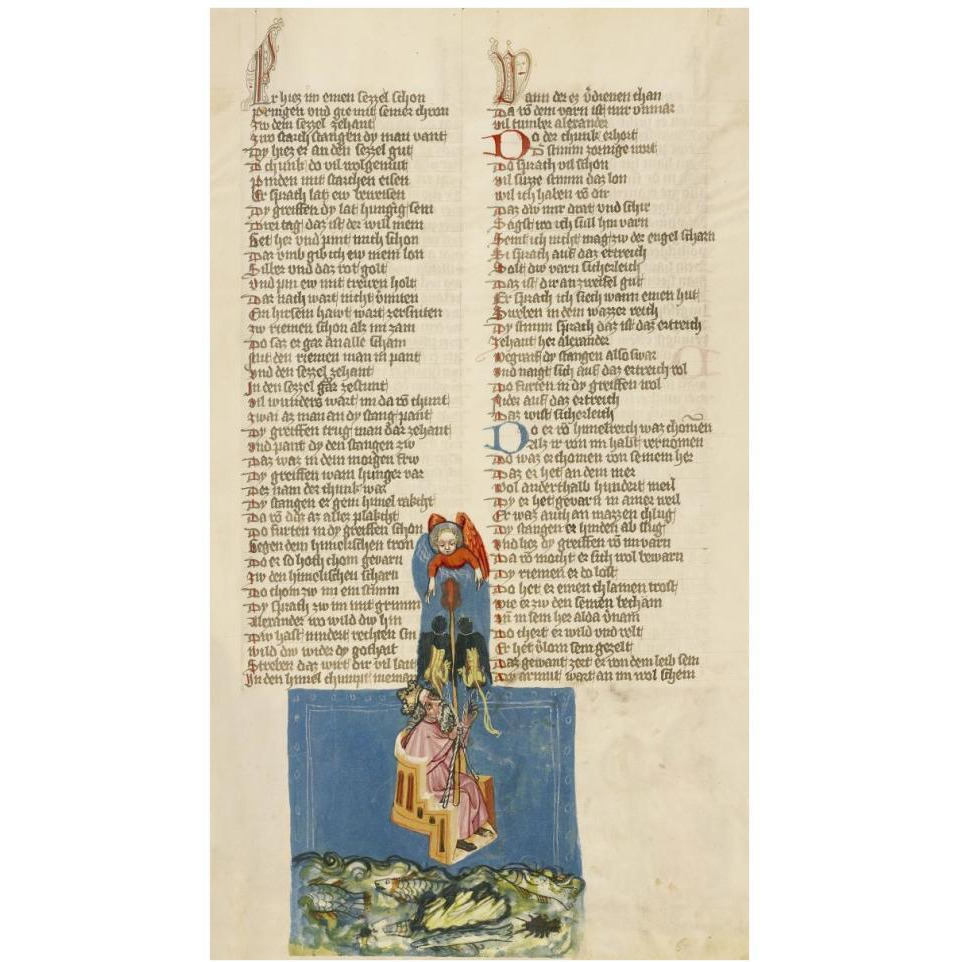 Er hiez im einen sezzel schon
Pringen vnd gie mit seiner chron
Zw dem sezzel zehant
Zwo starch stangen dy man vant
Dy hiez er an den sezzel gut
D chunk do vil wolgemut
Pinden mit starchen eisen
Er sprach lat ew beweisen
Dy greiffen dy lat hungig sein
Drei tag daz ist der will mein
Set her vnd pint mich schon
Dar vmb gib ich ew mein lon
Silber vnd daz rot golt
Vnd pin ew mit trewen holt
Dar nach wart nicht vmiten
Ein hirsein hawt wart zersniten
Zw riemen schon als im zam
Do saz er gar an alle scham
Mit den riemen man in pant
Vnd den sezzel zehant
In den sezzel gar zestunt
Vil wunders wart im da vo chunt
Zwai az man an dy stang pant
Dy greiffen trug man dar zehant
Vnd pant dy den stangen zw
Daz waz in dem morgen frw
Dy greiffen warn hunger var
Dez nam der chunk war
Dy stangen er gein himel rakcht
Da vo daz az allez plakcht
Do furten in dy greiffen schon
Gegen dem himelischen tron
Do er so hoch chom gevarn
Zw den himelischen scharn
Do chom zw im ein stimm
Dy sprach zw im mit grimm
Alexander wo wild dw hin
Dw hast nindert rechten sin
Wild dw wider dy gothait
Streben daz wirt dir vil lait
In den himel chumpt nieman
Wann der ez vdienen chan
Da vo dem varn ist mir vnmar
Vil tumber alexander
Do der chunk erhort
D stimm zornige wort
Do sprach vil schon
Vil suzze stimm daz lon
Wil ich haben vo dir
Daz dw mir drat vnd schir
Sagst wo ich sull hin varn
Seint ich nicht mag zw der engel scharn
Si sprach auf daz ertreich
Solt dw varn sicherleich
Daz ist dir an zweifel gut
Er sprach ich siech wann einen hut
Sweben in dem wazzer reich
Dy stimm sprach daz ist daz ertreich
Zehant her alexander
Begraif dy stangen also swar
Vnd naigt sich auf daz ertreich vol
Do furten in dy greiffen wol
Nider auf daz ertreich
Daz wist sicherleich
Do er vo himelreich waz chomen
Als ir von im habt vernomen
Do waz er chomen von seinem her
Daz er het an dem mer
Wol anderthalb hundert meil
Dy er het gevarn in ainer weil
Er waz auch an mazzen chlug
Dy stangen er hinden ab slug
Vnd liez dy greiffen vo im varn
Da vo mocht er sich wol bewarn
Dy riemen er do lost
Do het er einen chlainen trost
Wie er zw den seinen becham
In sein her alda vnam
Do chert er wild vnd velt
Er het vlorn sein gezelt
Daz gewant zert er von dem leib sein
Dy armut wart an im wol schein